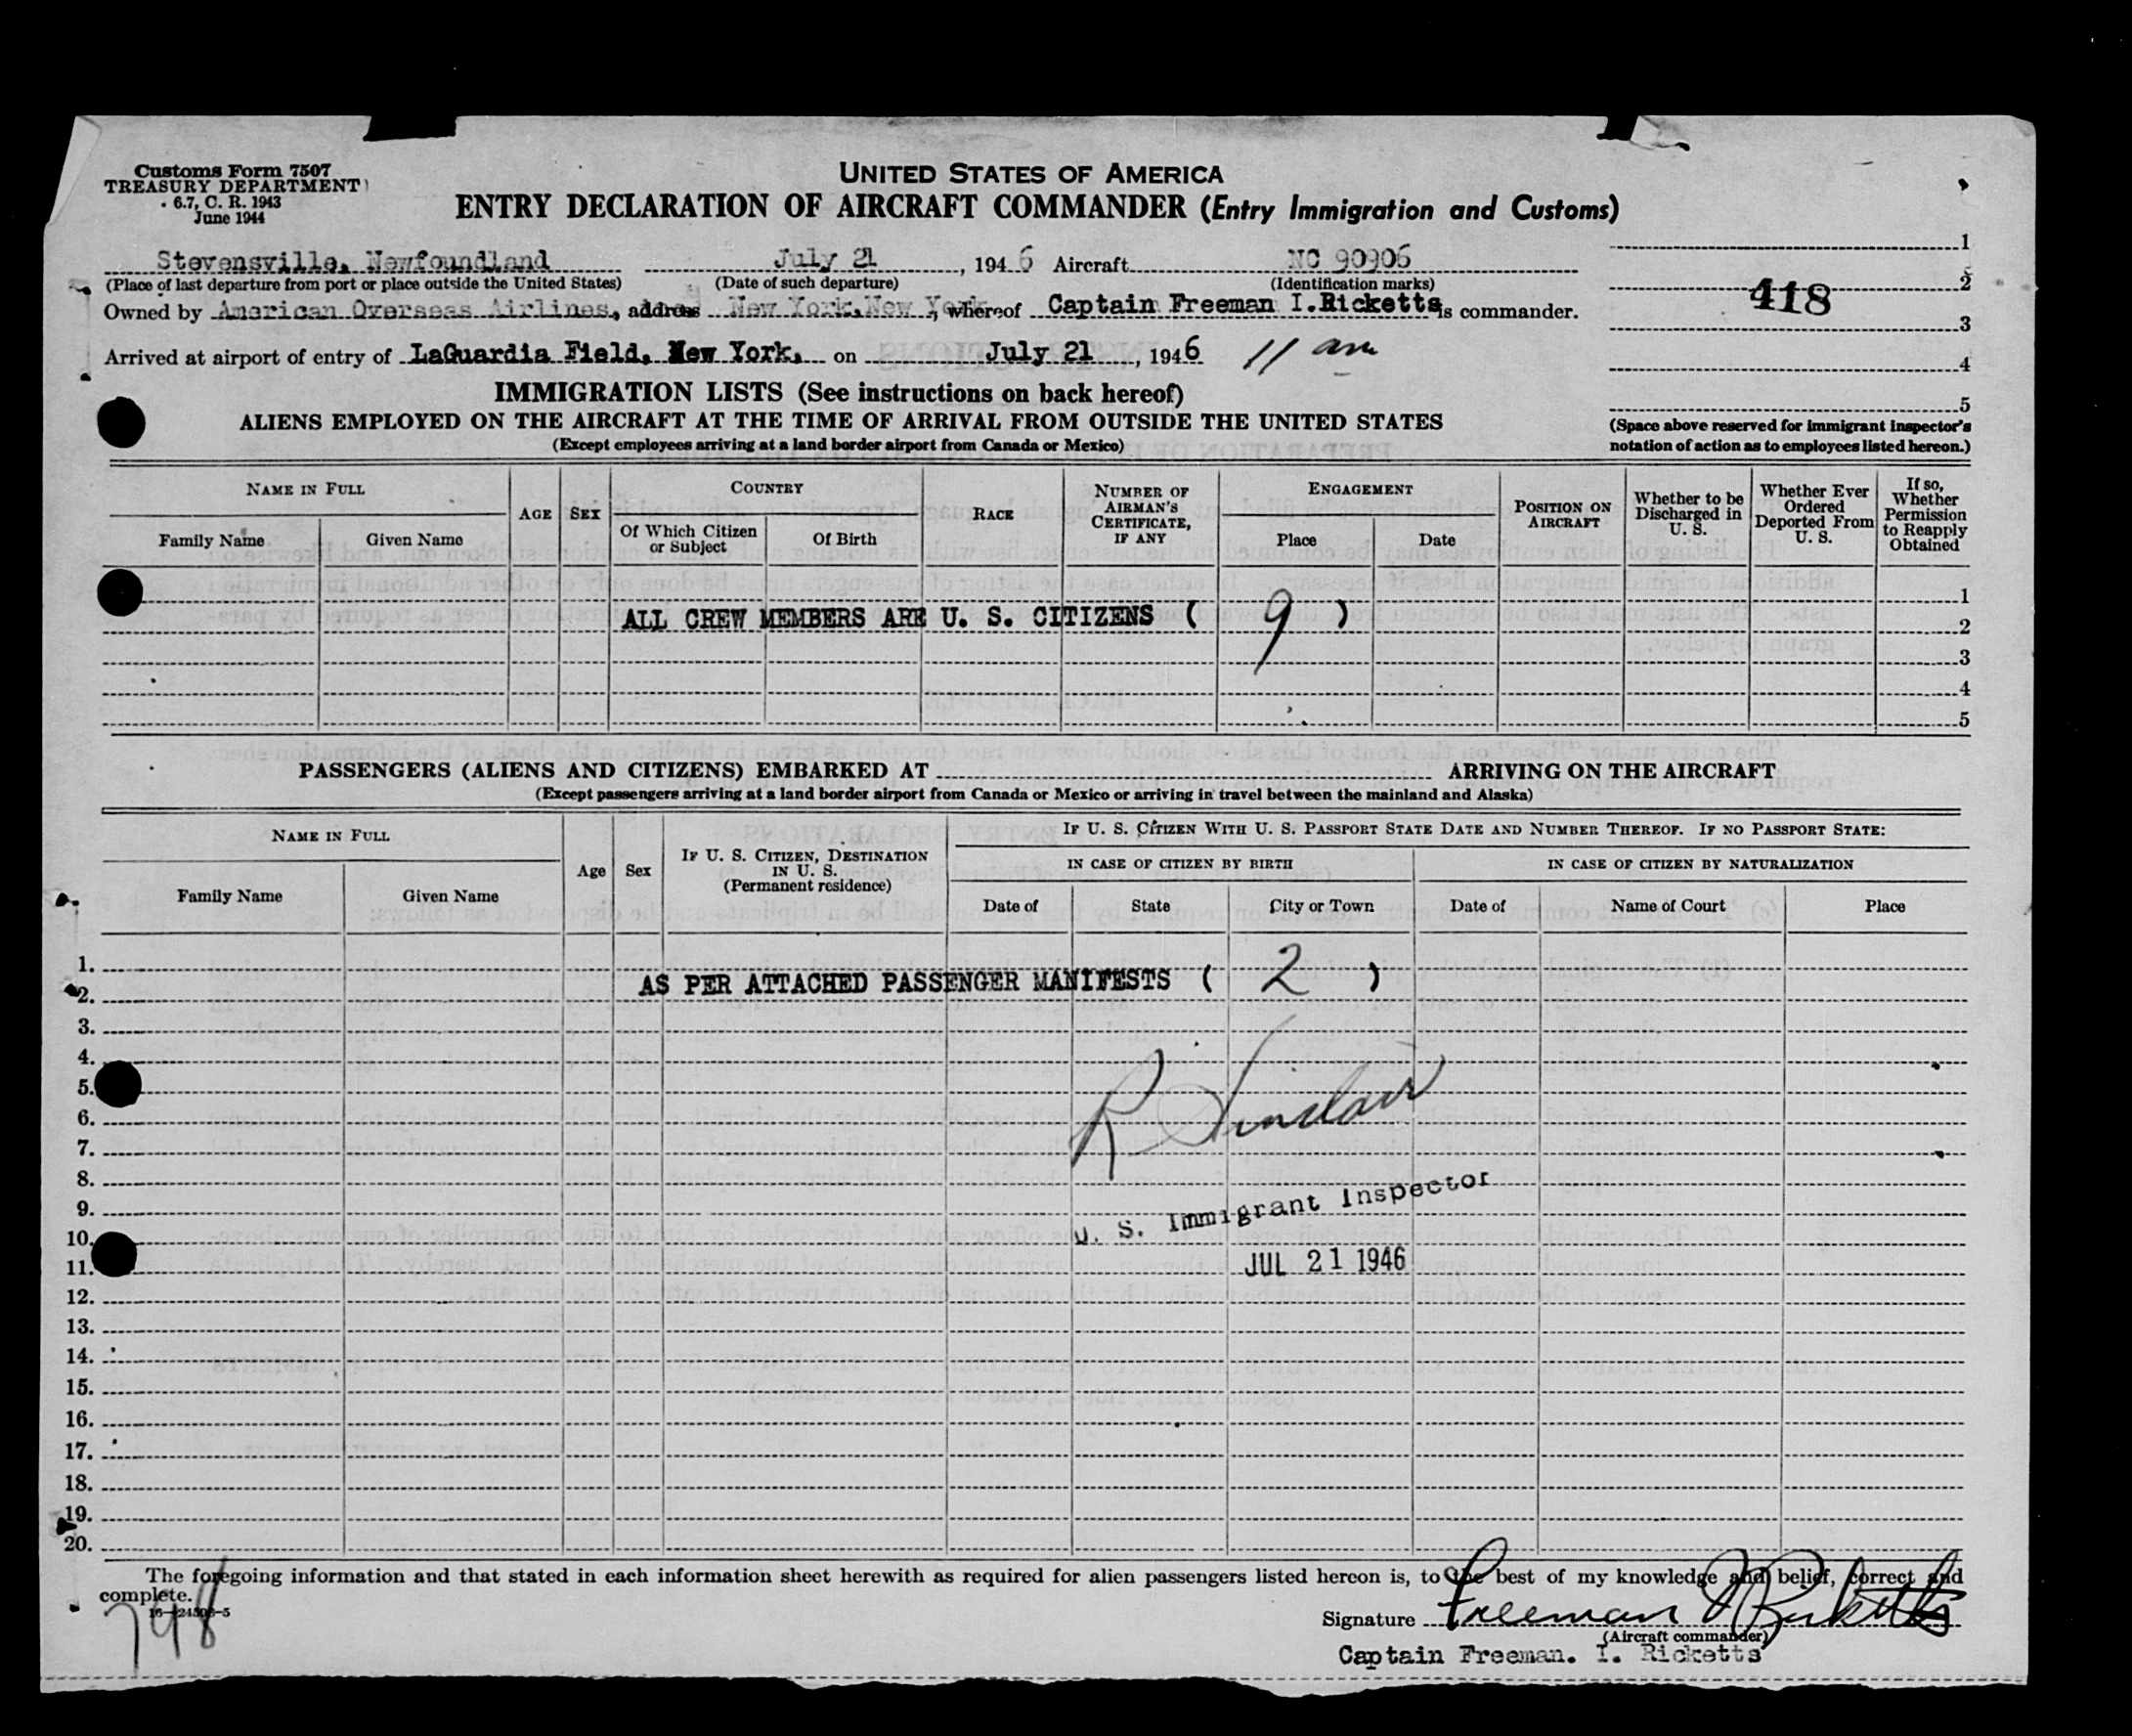 Customs Form 7507
TREASURY DEPARTMENT
6.7, C. R. 1943
June 1944
UNITED STATES OF AMERICA
ENTRY DECLARATION OF AIRCRAFT COMMANDER (Entry Immigration and Customs)
Stevensville, Newfoundland July 21, 1946 Aircraft NC 90906
(Place of last departure from port or place outside the United States) (Date of such departure) (Identification marks)
Owned by American Overseas Airlines, address New York, New York, whereof Captain Freeman I. Ricketts is commander.
Arrived at airport of entry of LaGuardia Field, New York, on July 21, 1946 11 am
1
2
418
3
4
5
(Space above reserved for immigrant inspector's
notation of action as to employees listed hereon.)
IMMIGRATION LISTS (See instructions on back hereof)
ALIENS EMPLOYED ON THE AIRCRAFT AT THE TIME OF ARRIVAL FROM OUTSIDE THE UNITED STATES
(Except employees arriving at a land border airport from Canada or Mexico)
NAME IN FULL
Family Name Given Name
AGE
SEX
COUNTRY
Of Which Citizen or Subject
Of Birth
RACE
NUMBER OF AIRMAN'S CERTIFICATE, IF ANY
ENGAGEMENT
Place Date
POSITION ON AIRCRAFT
Whether to be Discharged in U. S.
Whether Ever Ordered Deported From U. S.
If so, Whether Permission to Reapply Obtained
1
ALL CREW MEMBERS ARE U. S. CITIZENS ( 9 )
2
3
4
5
PASSENGERS (ALIENS AND CITIZENS) EMBARKED AT ARRIVING ON THE AIRCRAFT
(Except passengers arriving at a land border airport from Canada or Mexico or arriving in travel between the mainland and Alaska)
NAME IN FULL
Family Name Given Name
Age
Sex
IF U. S. CITIZEN, DESTINATION IN U. S.
(Permanent residence)
IF U. S. CITIZEN WITH U. S. PASSPORT STATE DATE AND NUMBER THEREOF. IF NO PASSPORT STATE:
IN CASE OF CITIZEN BY BIRTH
Date of State City or Town
IN CASE OF CITIZEN BY NATURALIZATION
Date of Name of Court Place
1.
AS PER ATTACHED PASSENGER MANIFESTS ( 2 )
2.
3.
4.
5.
R Sinclair
6.
7.
8.
9.
U. S. Immigrant Inspector
10.
11.
JUL 21 1946
12.
13.
14.
15.
16.
17.
18.
19.
20.
The foregoing information and that stated in each information sheet herewith as required for alien passengers listed hereon is, to the best of my knowledge and belief, correct and
complete.
798
Signature Freeman I Ricketts
(Aircraft commander)
Captain Freeman. I. Ricketts